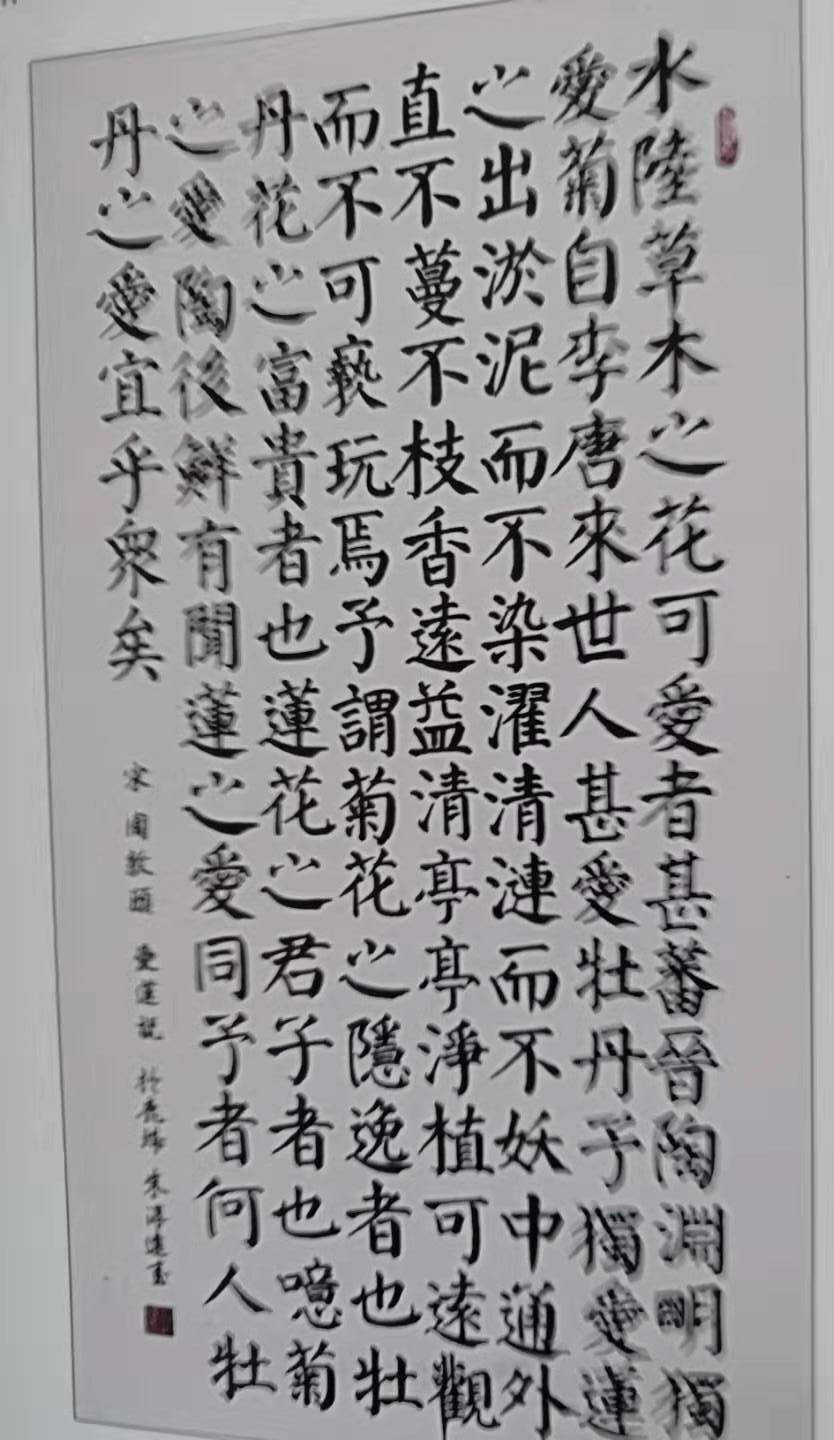 水陸草木之花可愛者甚蕃晉陶淵明獨
愛菊自李唐來世人甚愛牡丹予獨愛蓮
之出淤泥而不染濯清漣而不妖中通外
直不蔓不枝香遠益清亭亭淨植可遠觀
而不可褻玩焉予謂菊花之隱逸者也牡
丹花之富貴者也蓮花之君子者也噫菊
之愛陶後鮮有聞蓮之愛同予者何人牡
丹之愛宜乎眾矣
宋周敦頤愛蓮説於